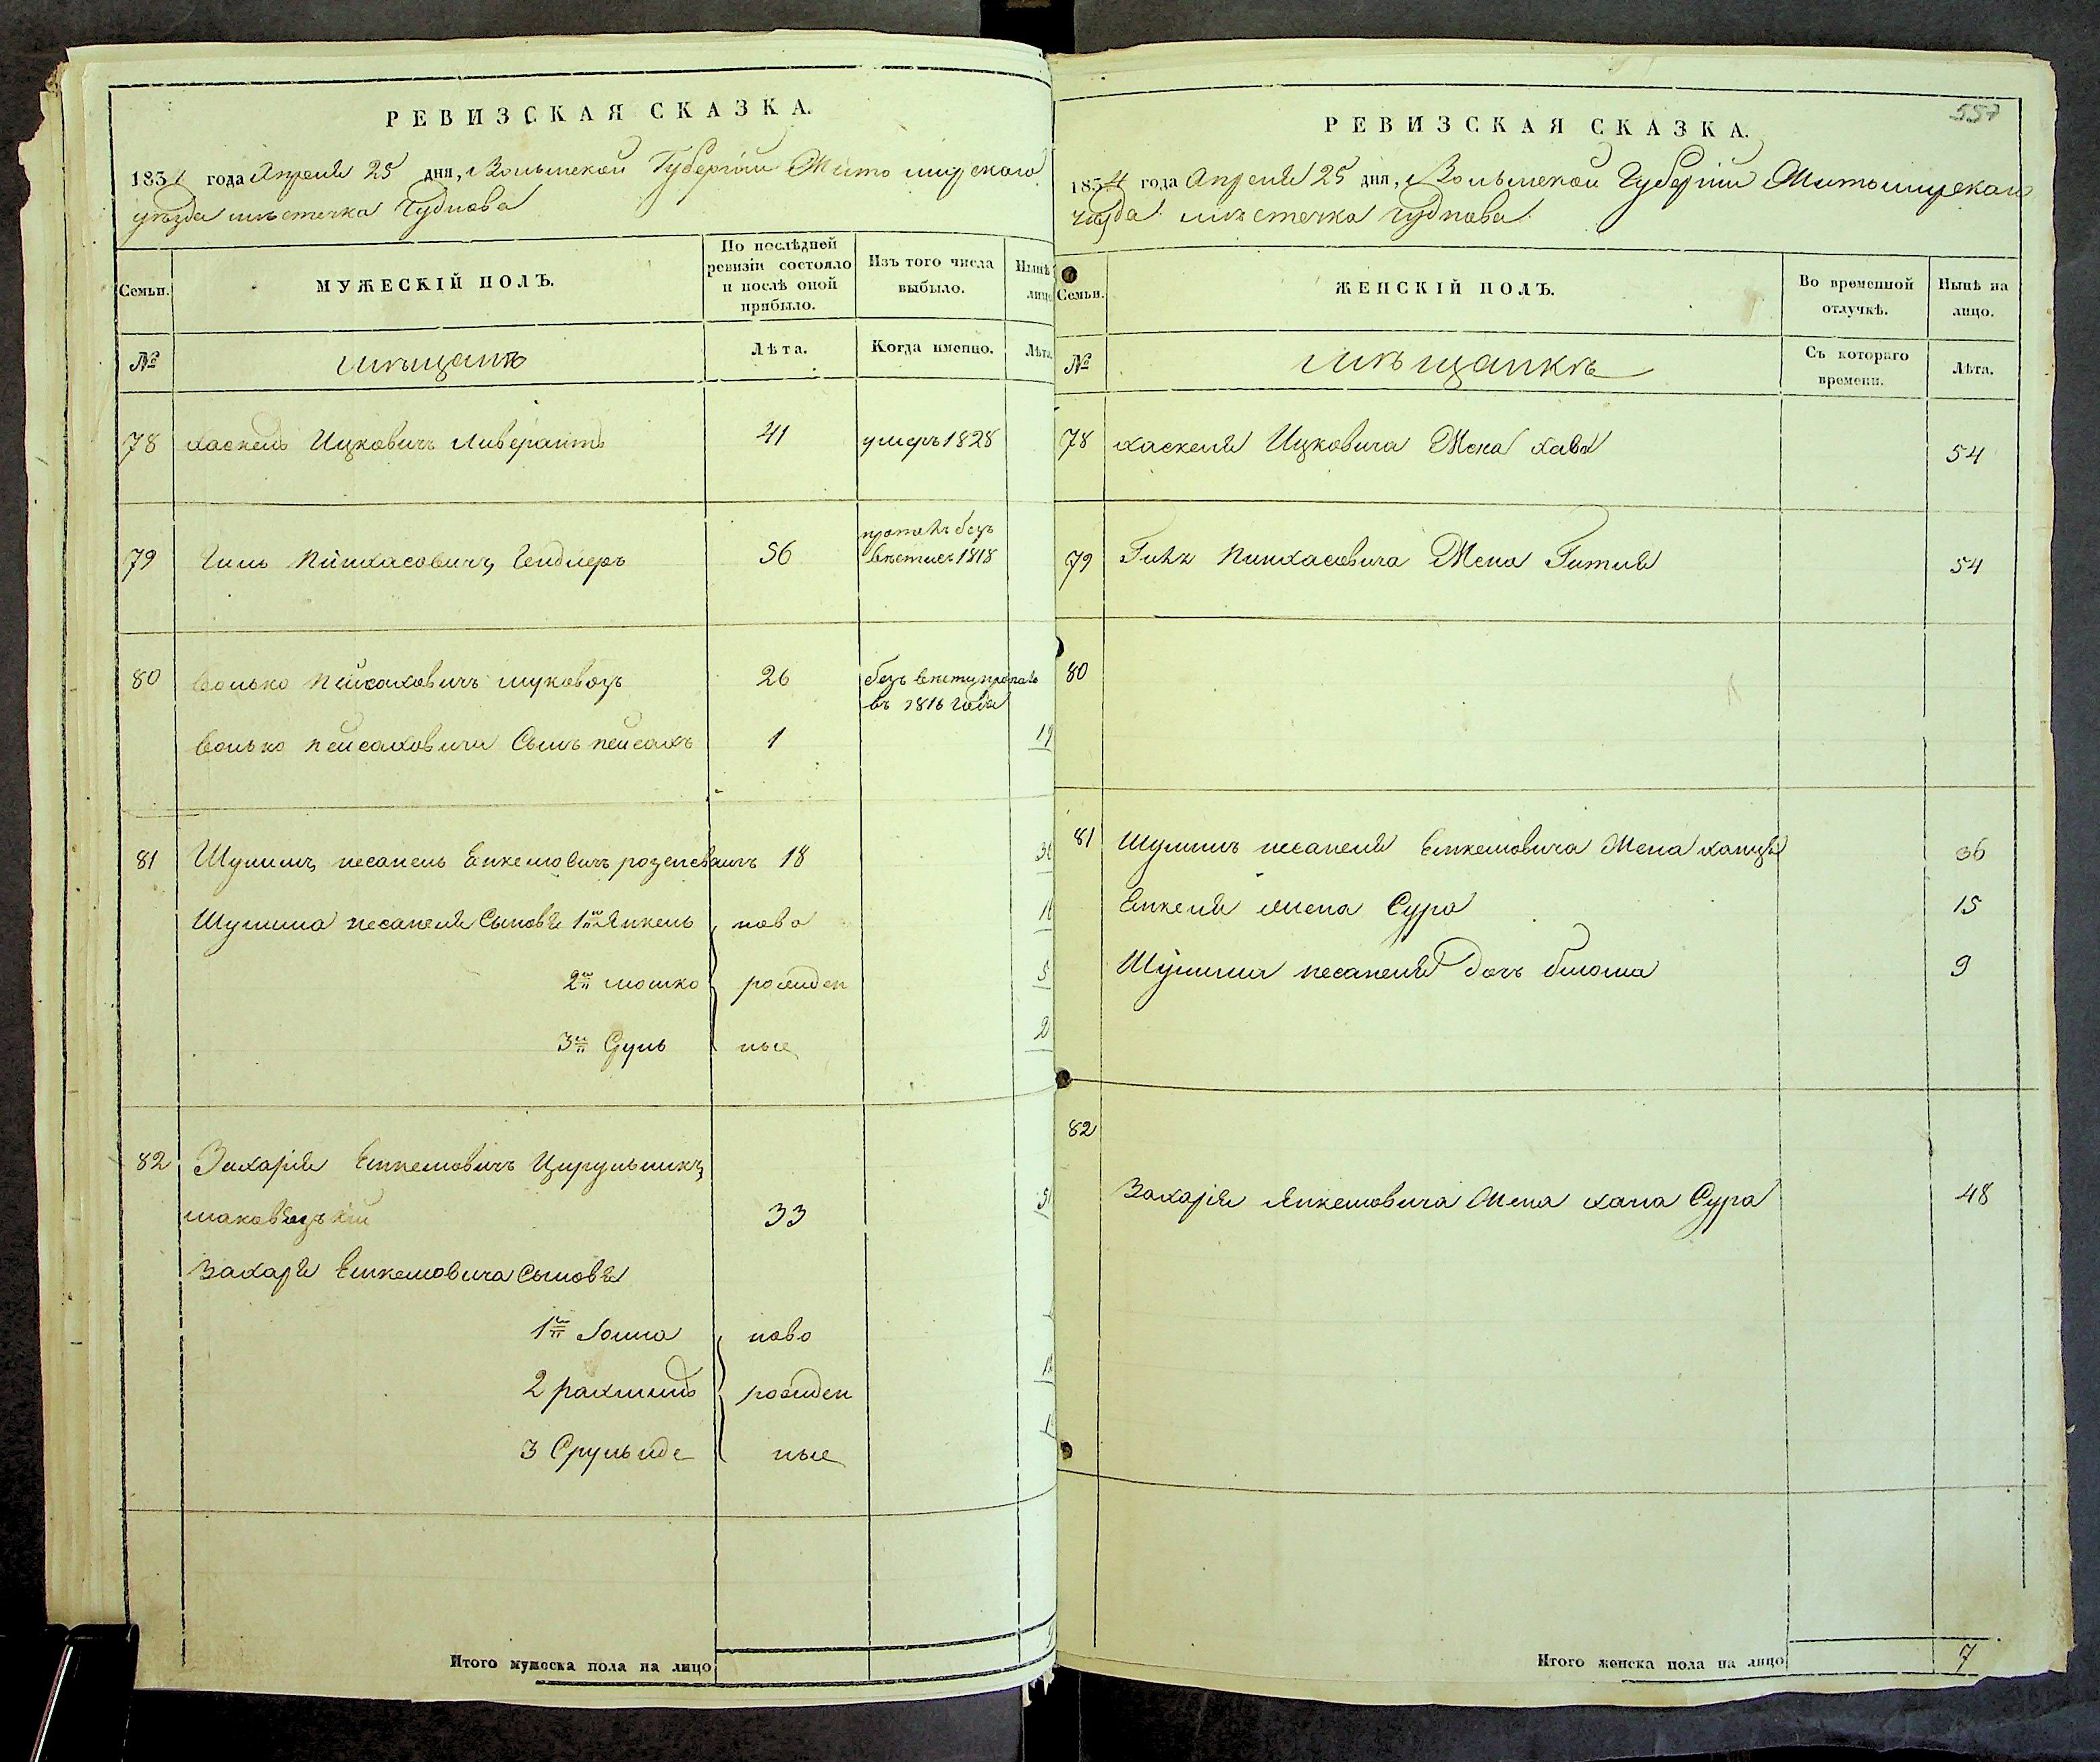 РЕВИЗСКАЯ СКАЗКА.
1834 года Апреля 25 дня, Волынской Губернии Житомирского
уезда местечка Чуднова
Семьи.
МУЖЕСКІЙ ПОЛЪ.
По послѣдней
ревизіи состояло
и послѣ оной
прибыло.
Изъ того числа
выбыло.
Нынѣ
лицо
№
мещане
Лѣта.
Когда именно.
Лѣта.
78 Хаскель Ицковичъ Ливерантъ 41 умеръ 1828
79 Гиль Пинхасовичъ 56 1818
80 Волько Пейсаховичъ 26 безъ
въ 1816 годе
Волько Пейсаховича Сынъ Пейсахъ 1 19
81 Шулимъ несанель Енкелевичъ 18
Шулима несанеля Сыновя 1й Янкель ново
2й мошко рожден 5
3й Сруль ные 2
82 Захария Енкелевичъ Цирульникъ
33
Захаря Енкелевича Сыновя
1й ново
2 рахмиль рожден
3 Сруль иде ные
Итого мужеска пола на лицо
557
РЕВИЗСКАЯ СКАЗКА.
1834 года Апреля 25 дня, Волынской Губернии Житомирского
уезда местечка Чуднова
Семьи.
ЖЕНСКІЙ ПОЛЪ.
Во временной
отлучкѣ.
Нынѣ на
лицо.
№
мещанкъ
Съ котораго
времени.
Лѣта.
78 Хаскеля Ицковича Жена Хава 54
79 Пинхасовича Жена Гитля 54
80
81 Шулимъ несанеля Енкелевича Жена 36
Енкеля жена Сура 15
Шулима несанеля дочь блюма 9
82
Захария Янкелевича Жена хана Сура 48
Итого женска пола на лицо 7